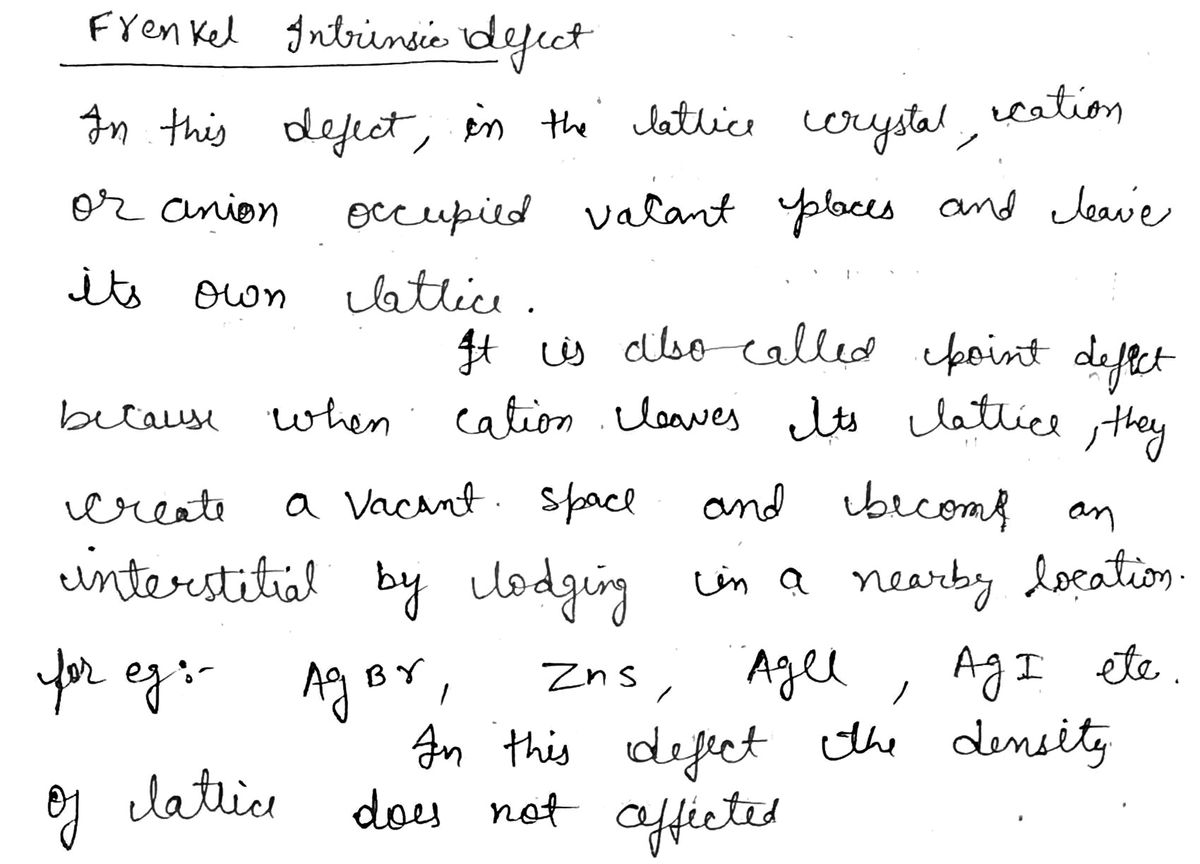 Frenkel Intrinsic defect
In this defect, in the lattice crystal, cation
or anion occupied vacant places and leave
its own lattice.
It is also called point defect
because when cation leaves its lattice, they
create a vacant space and become an
interstitial by lodging in a nearby location.
for eg:- AgBr, ZnS, AgCl, AgI etc.
In this defect the density
of lattice does not affected.